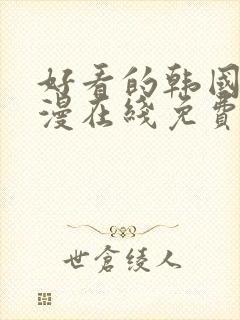 好看的韩国
漫在线免费
世仓绫人